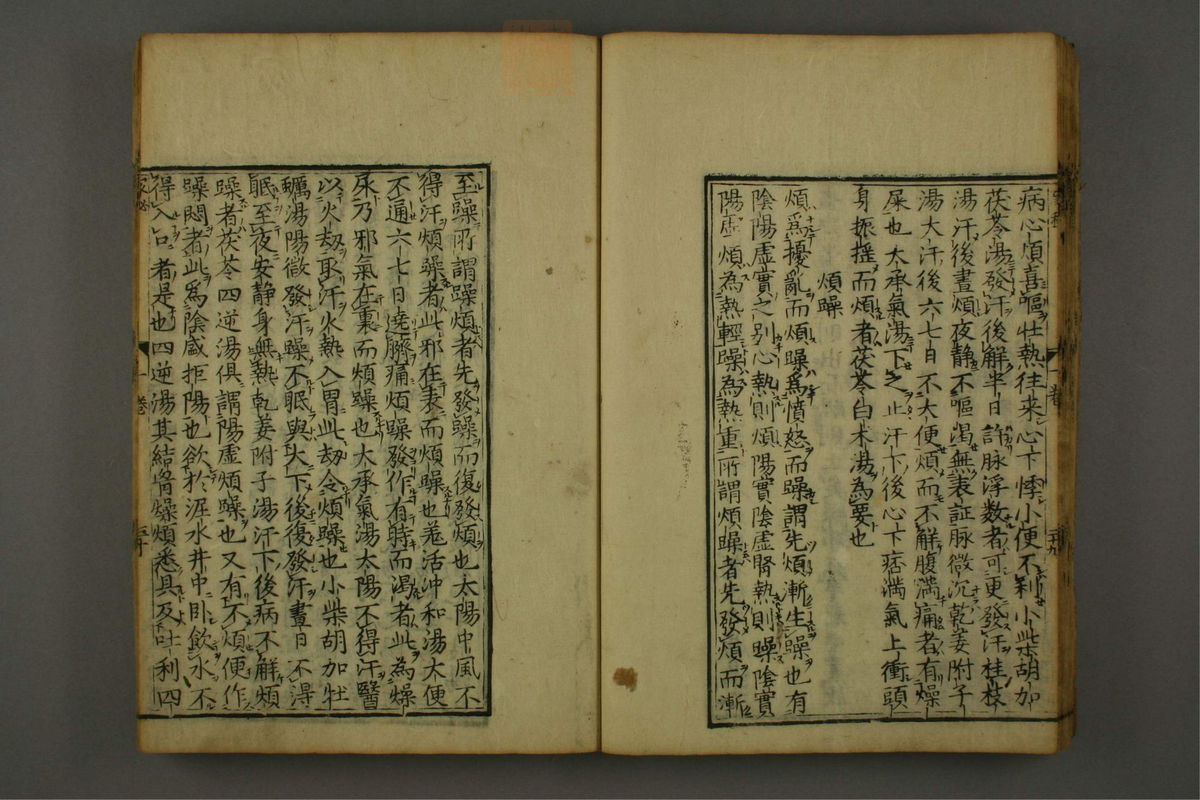 病心煩喜嘔壮熱往来心下悸小便不利小柴胡加
茯苓湯發汗後解半日許脉浮数者可更發汗桂枝
湯汗後晝煩夜静不嘔渴無表証脉微沉乾姜附子
湯大汗後六七日不大便煩而不解腹満痛者有燥
屎也大承氣湯下之止汗下後心下痞満氣上衝頭
身振揺而煩者茯苓白朮湯為要也
煩躁
煩爲擾亂而煩躁爲憤怒而躁謂先煩漸生躁也有
陰陽虚實之别心熱則煩陽實陰虚腎熱則躁陰實
陽虚煩為熱輕躁為熱重所謂煩躁者先發煩而漸
至躁所謂躁煩者先發躁而復發煩也太陽中風不
得汗煩躁者此邪在表而煩躁也羗活沖和湯大便
不通六七日遶臍痛煩躁發作有時而渴者此為燥
屎乃邪氣在裏而煩躁也大承氣湯太陽不得汗醫
以火劫取汗火熱入胃此劫令煩躁也小柴胡加牡
蠣湯陽微發汗躁不眠與大下後復發汗晝日不得
眠至夜安静身無熱乾姜附子湯汗下後病不解煩
躁者茯苓四逆湯俱謂陽虚煩躁也又有不煩便作
躁悶者此為陰盛拒陽也欲於泥水井中卧飲水不
得入口者是也四逆湯其結胷燥煩悉具及吐利四